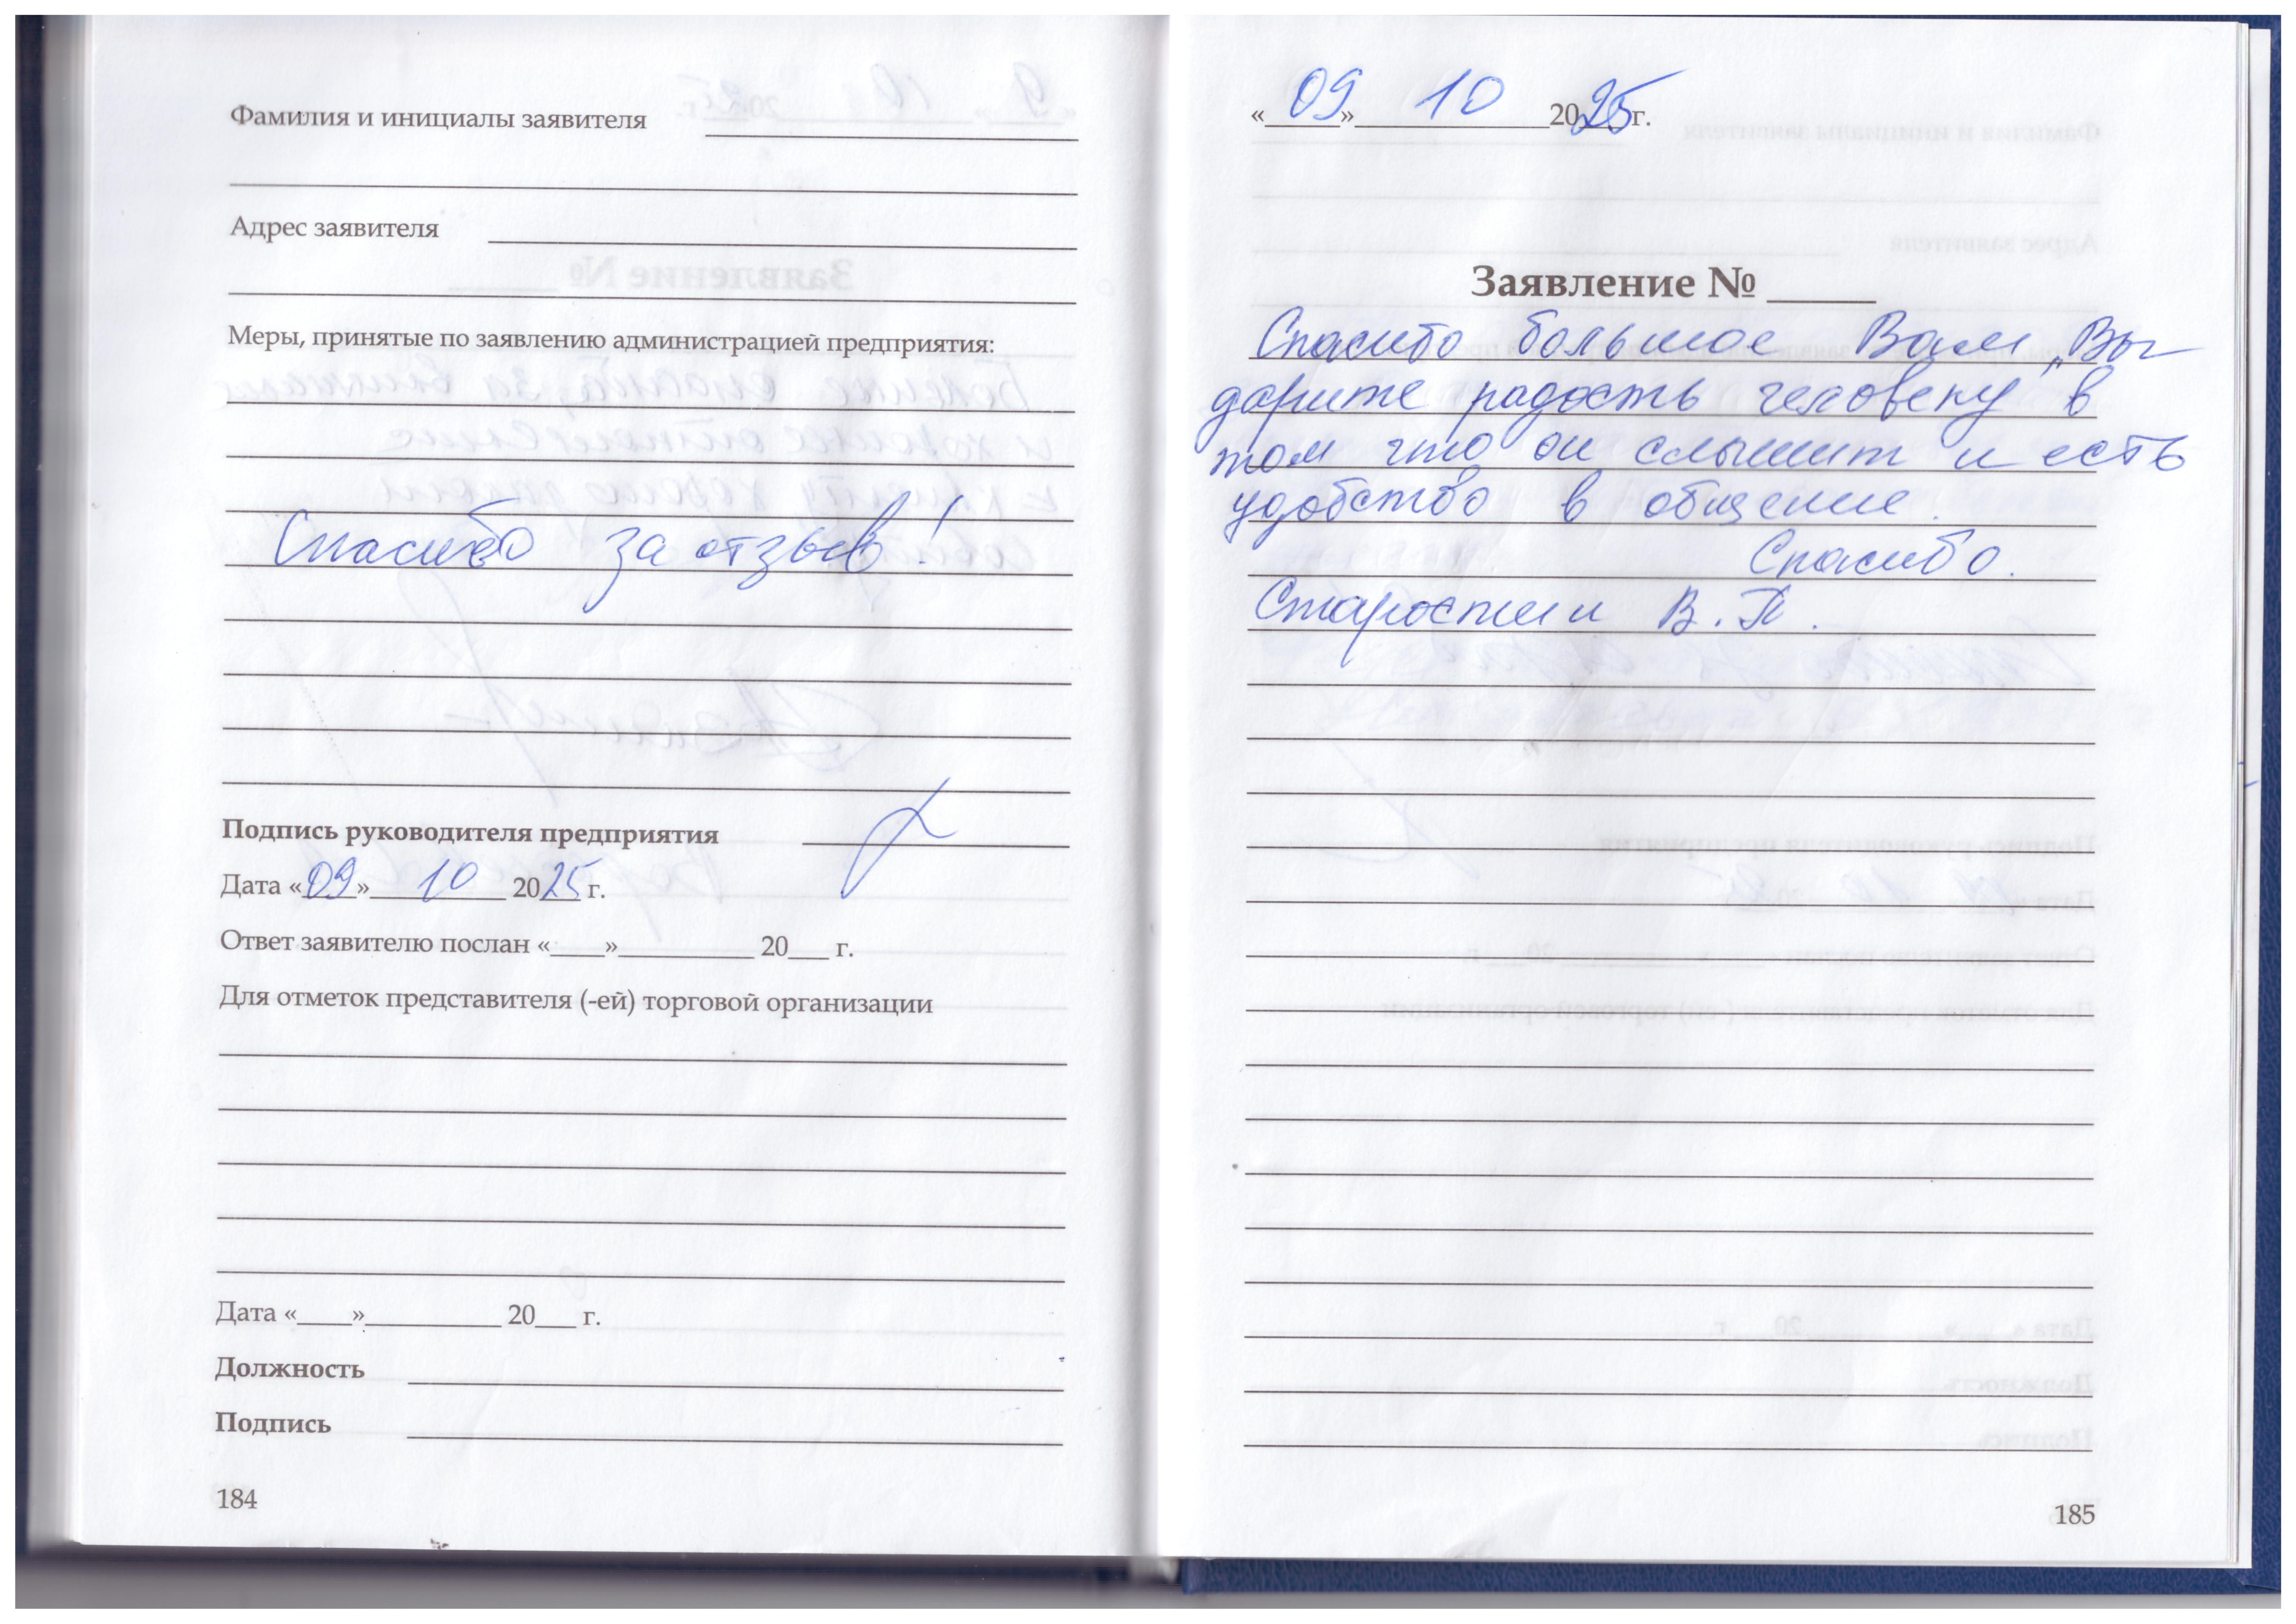 Фамилия и инициалы заявителя
Адрес заявителя
Меры, принятые по заявлению администрацией предприятия:
Спасибо за отзыв!
Подпись руководителя предприятия
Дата «09» 10 2025 г.
Ответ заявителю послан «____»__________ 20___ г.
Для отметок представителя (-ей) торговой организации
Дата «____»__________ 20___ г.
Должность
Подпись
184
«09» 10 2025 г.
Заявление № _____
Спасибо большое Вам, Вы
дарите радость человеку в
том что он слышит и есть
удобство в общение.
Спасибо.
Старостин В.П.
185